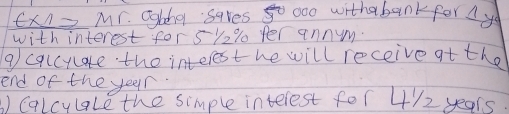 Ex1 = Mr. Ogbba saves 000 with a bank for 1 ye
with interest for 5 1/2 % Per annum.
a) calculate the interest he will receive at the
end of the year.
) Calculate the simple interest for 4 1/2 years.